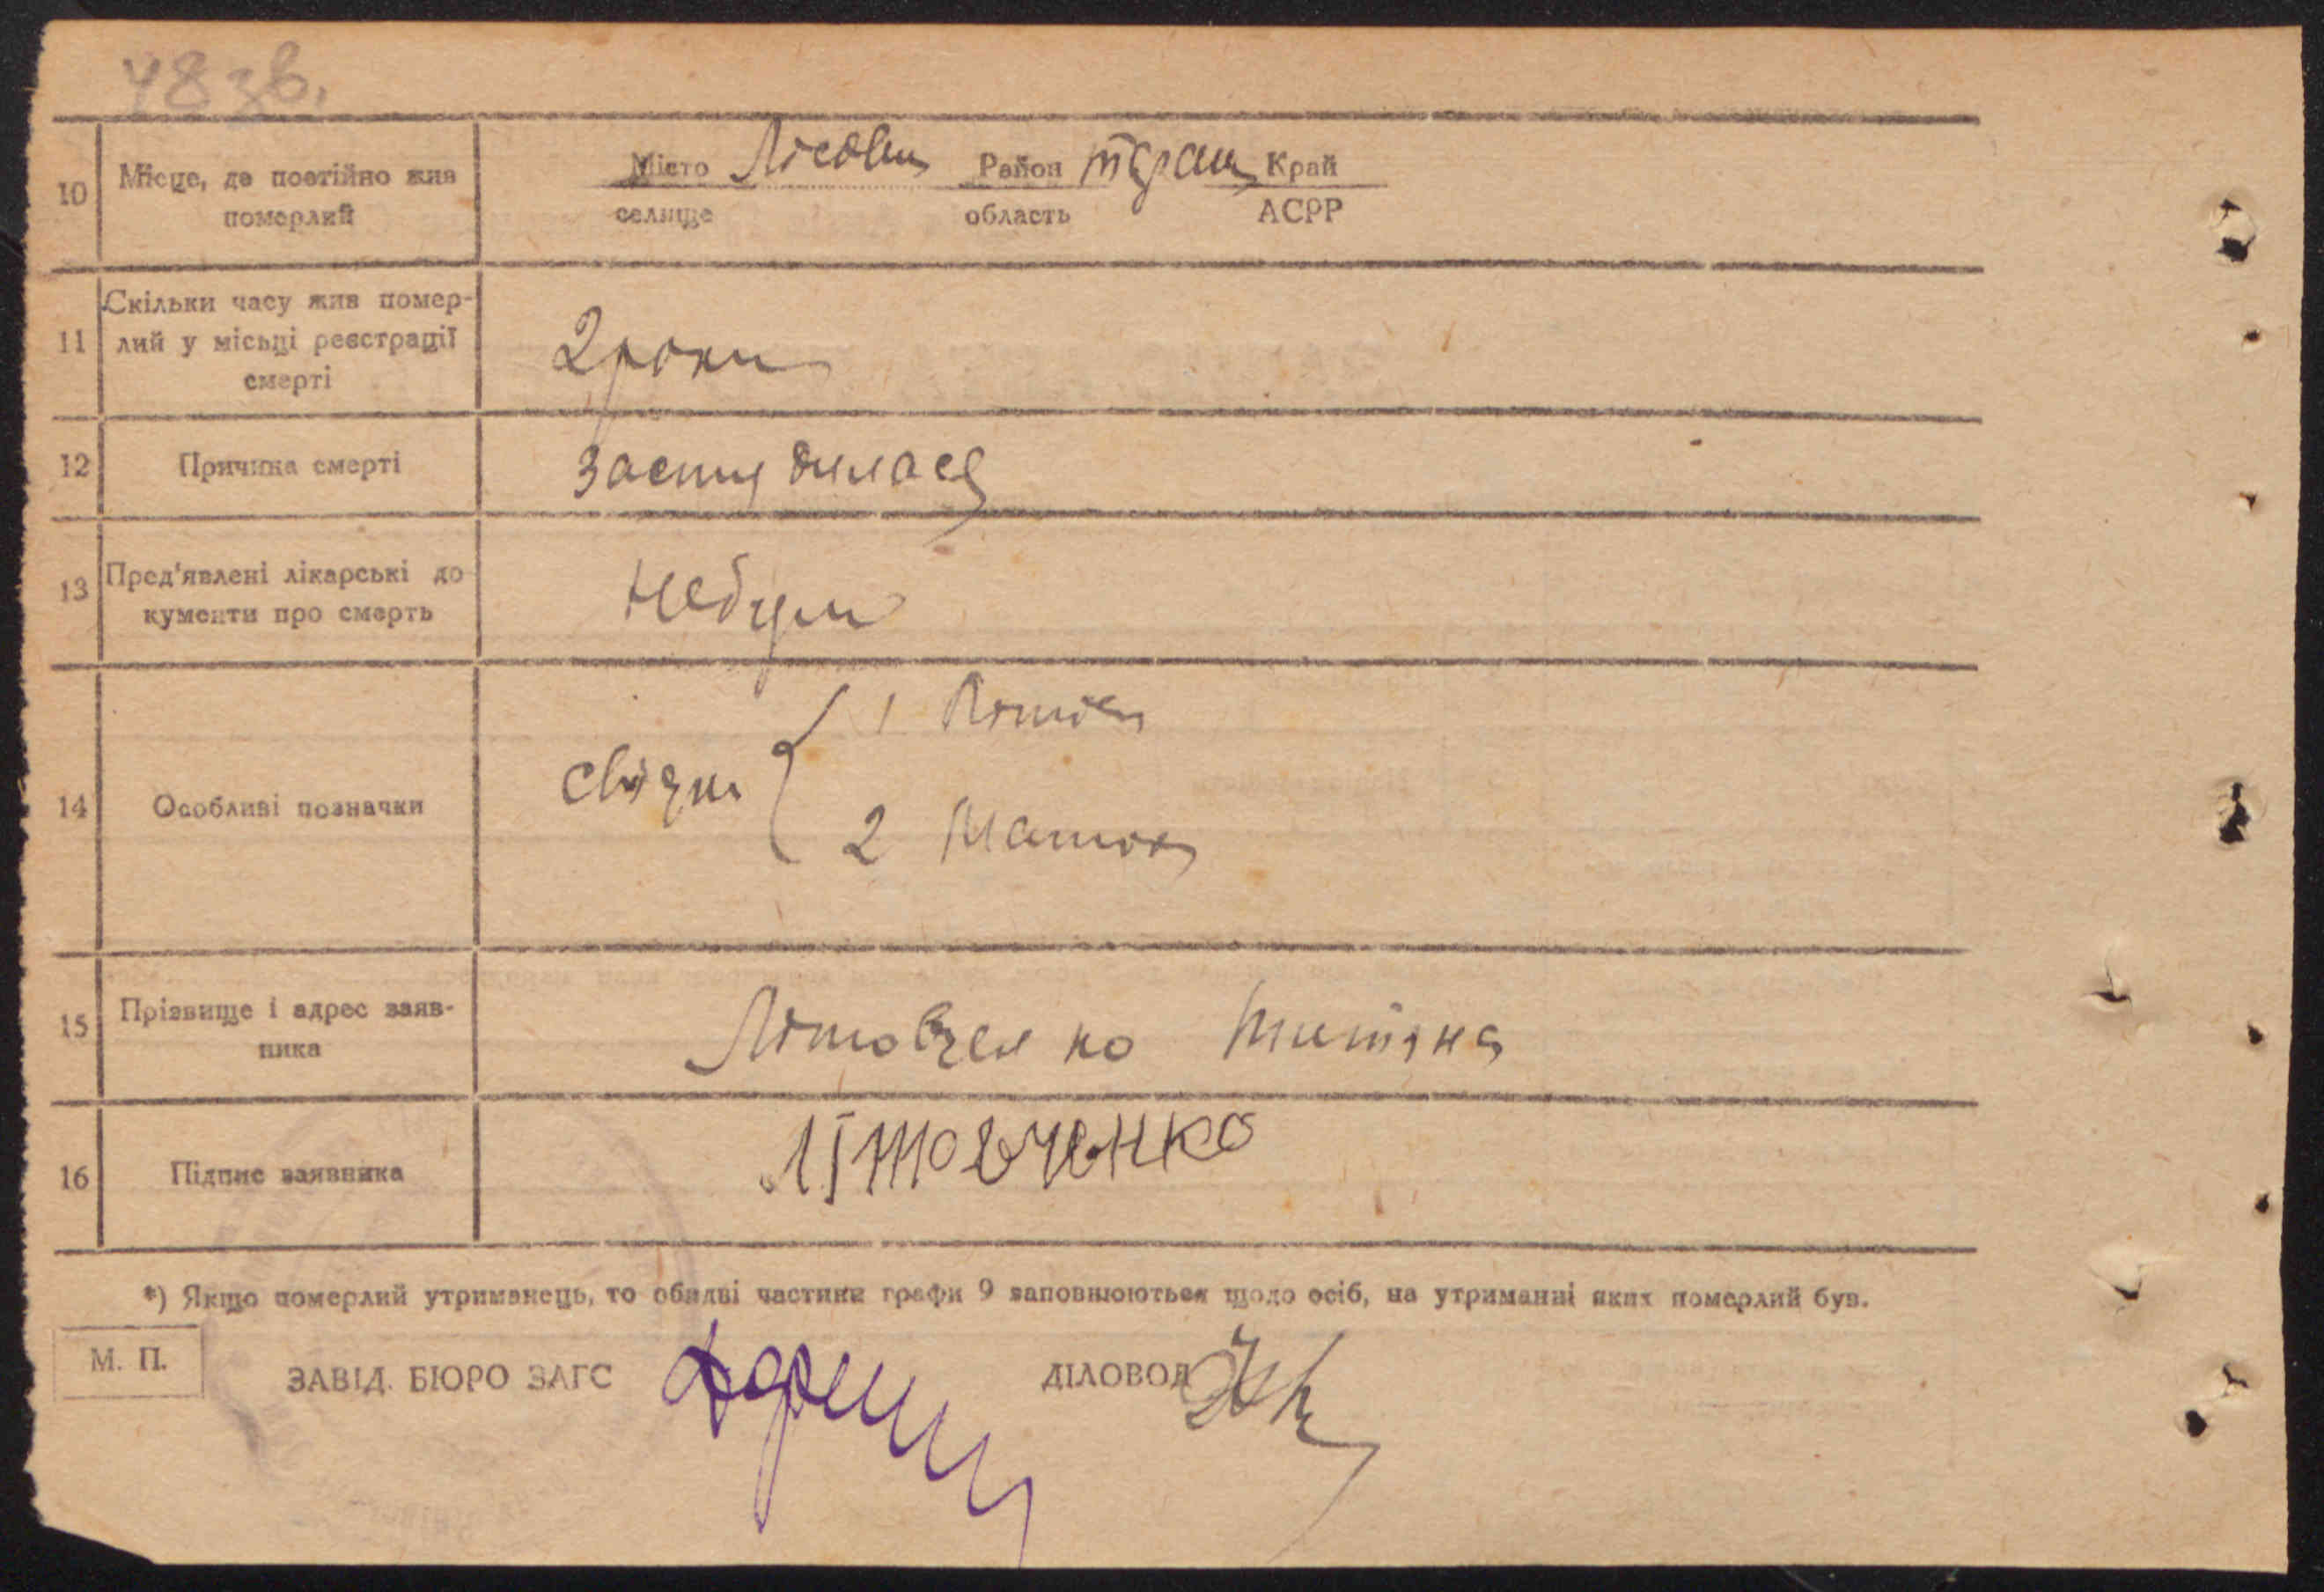 48 зв.
10 Місце, де постійно жив померлий
Місто Лісович Район Таращ Край
селище область АСРР
11 Скільки часу жив помер-
лий у місьці реєстрації
смерті
2 роки
12 Причина смерті
застудилася
13 Пред'явлені лікарські до
кументи про смерть
Небули
14 Особливі позначки
свідки
1
2
15 Прізвище і адрес заяв-
ника
Літовченко
16 Підпис заявника
Літовченко
*) Якщо померлий утриманець, то обидві частини графи 9 заповнюються щодо осіб, на утриманні яких померлий був.
М. П.
ЗАВІД. БЮРО ЗАГС ДІЛОВОД